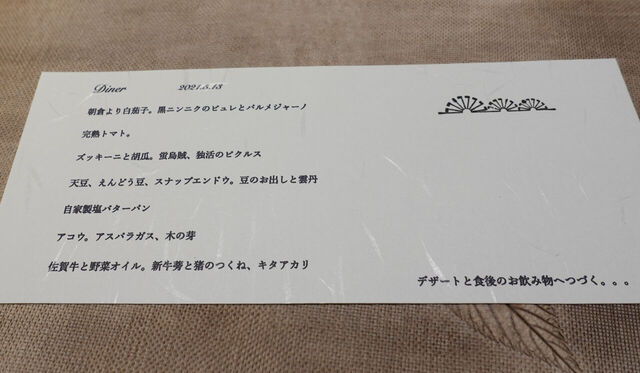 Diner 2021.5.13
朝倉より白茄子。黒ニンニクのピュレとパルメジャーノ
完熟トマト。
ズッキーニと胡瓜。蛍烏賊、独活のピクルス
天豆、えんどう豆、スナップエンドウ。豆のお出しと雲丹
自家製塩バターパン
アコウ。アスパラガス、木の芽
佐賀牛と野菜オイル。新牛蒡と猪のつくね、キタアカリ
デザートと食後のお飲み物へつづく。。。